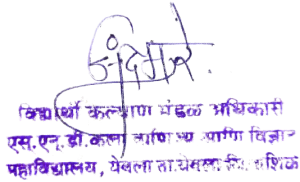 विद्यार्थी कल्याण मंडळ अधिकारी
एस.एन.डी.कला वाणिज्य आणि विज्ञान
महाविद्यालय, येवला ता.येवला जि. नाशिक